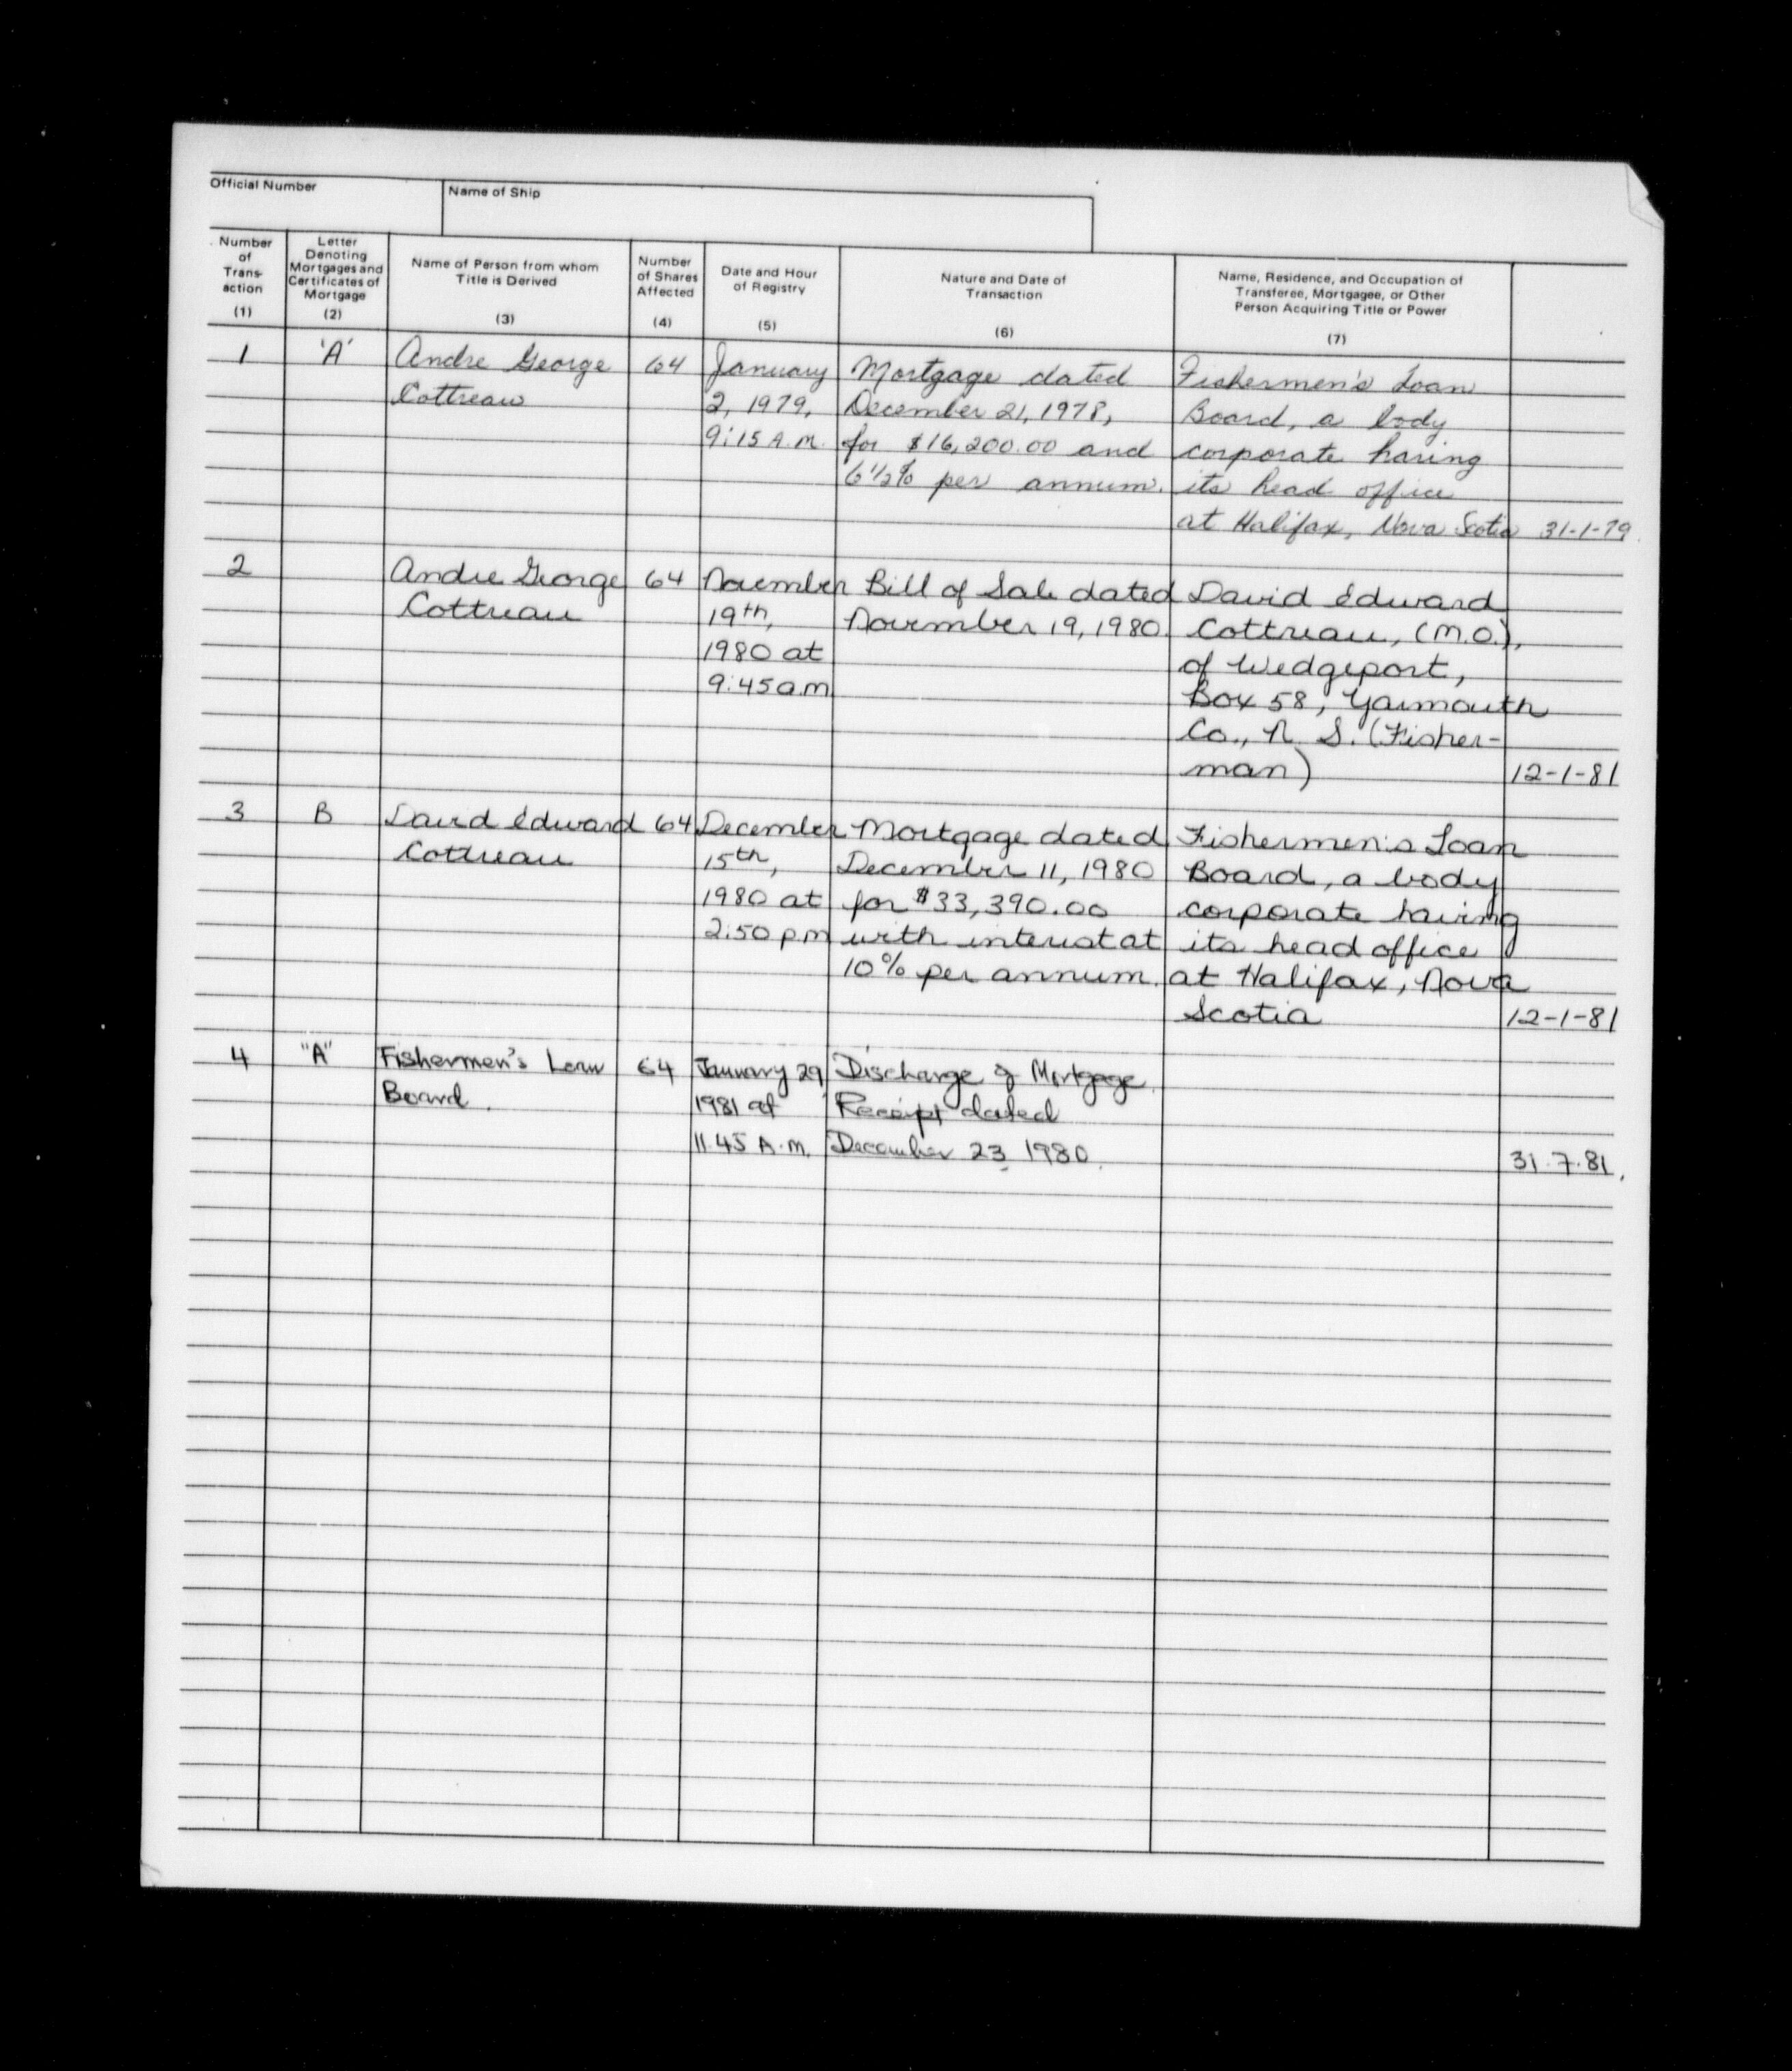 Official Number
Name of Ship
Number of Trans- action (1)
Letter Denoting Mortgages and Certificates of Mortgage (2)
Name of Person from whom Title is Derived (3)
Number of Shares Affected (4)
Date and Hour of Registry (5)
Nature and Date of Transaction (6)
Name, Residence, and Occupation of Transferee, Mortgagee, or Other Person Acquiring Title or Power (7)
1 'A' Andre George 64 January Mortgage dated Fishermen's Loan
Cottreau 2, 1979, December 21, 1978, Board, a body
9:15 A.M. for $16,200.00 and corporate having
6 1/2% per annum. its head office
at Halifax, Nova Scotia 31-1-79
2 Andre George 64 November Bill of Sale dated David Edward
Cottreau 19th, November 19, 1980. Cottreau, (M.O.),
1980 at of Wedgeport,
9:45 a.m. Box 58, Yarmouth
Co., N. S. (Fisher-
man) 12-1-81
3 B David Edward 64 December Mortgage dated Fishermen's Loan
Cottreau 15th, December 11, 1980 Board, a body
1980 at for $33,390.00 corporate having
2:50 p.m with interest at its head office
10% per annum. at Halifax, Nova
Scotia 12-1-81
4 "A" Fishermen's Loan 64 January 29 Discharge of Mortgage
Board. 1981 at Receipt dated
11.45 A.M. December 23 1980. 31.7.81.